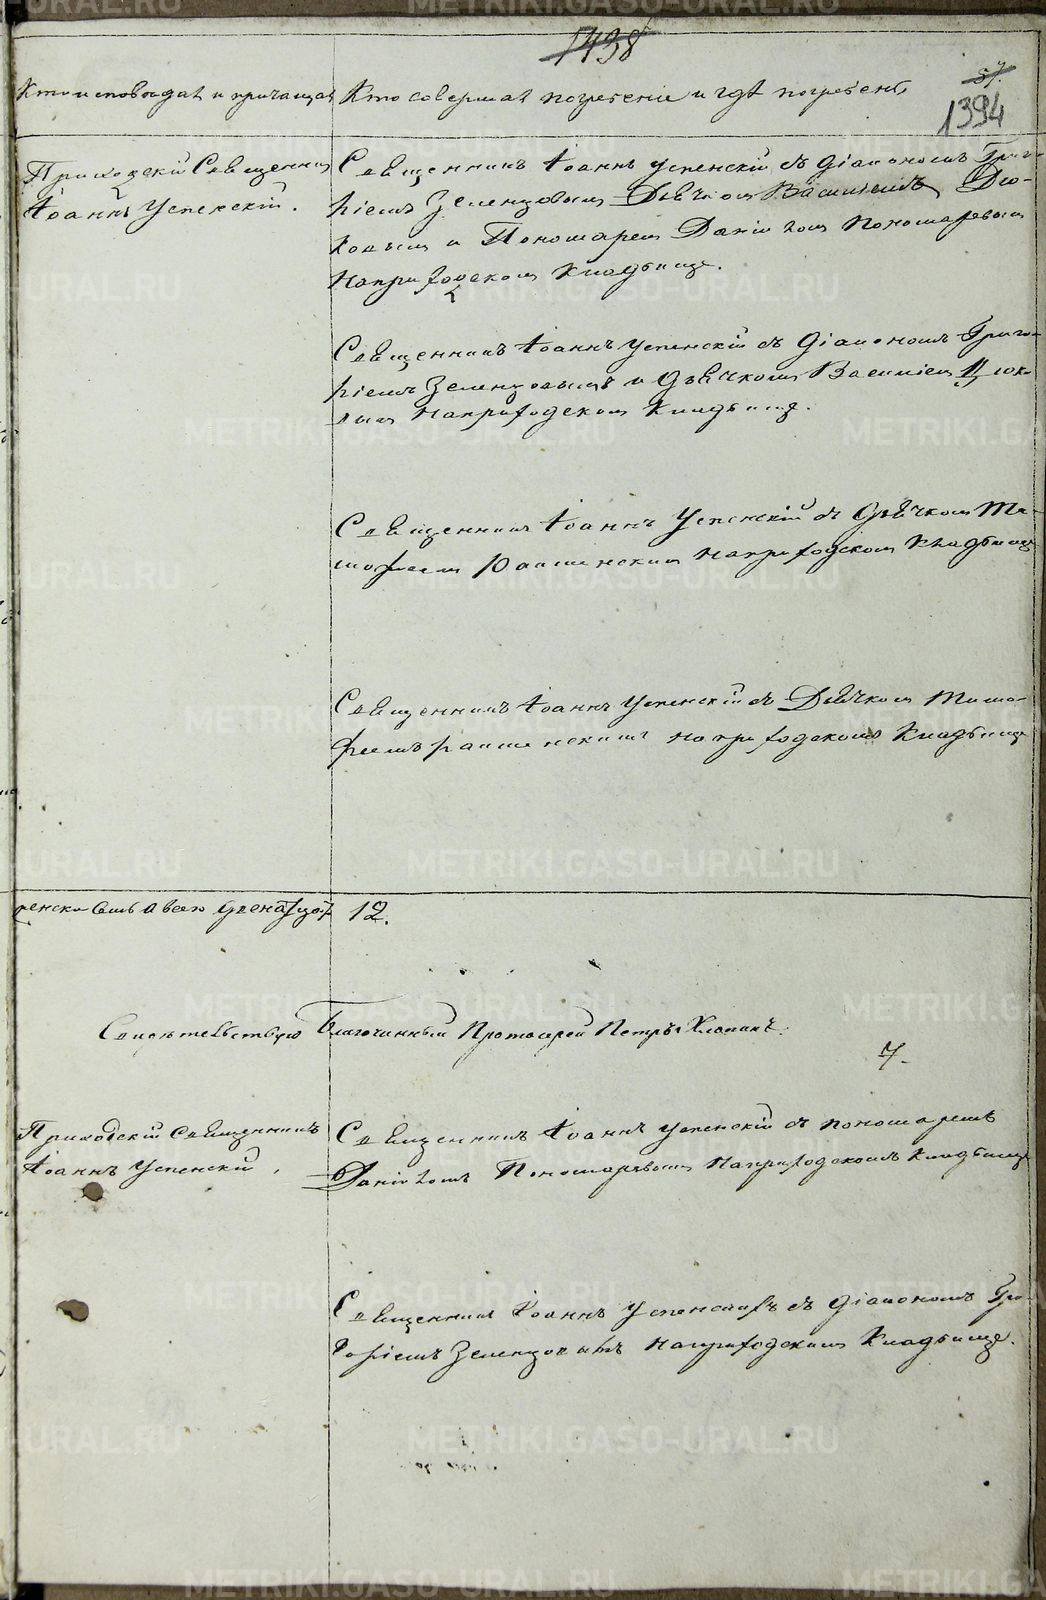 1438
57.
1394
Кто исповѣдалъ и причащалъ
Кто совершалъ погребеніе и гдѣ погребены
Приходскій Священникъ
Іоаннъ Успенскій.
Священникъ Іоаннъ Успенскій съ діакономъ Григо-
ріемъ Зеленцовымъ Дьячкомъ Василіемъ Дю-
ковымъ и Пономаремъ Даніиломъ Пономаревымъ
На приходскомъ Кладбище.
Священникъ Іоаннъ Успенскій съ діакономъ Григо-
ріемъ Зеленцовымъ и дьячкомъ Василіемъ Дюко-
вымъ На приходскомъ Кладбище.
Священникъ Іоаннъ Успенскій съ дьячкомъ Ти-
мофеемъ На приходскомъ Кладбище
Священникъ Іоаннъ Успенскій съ Дьячкомъ Тимо-
феемъ На приходскомъ Кладбище
женска семь а всего двенадцать
12.
Свидѣтельствую Благочинный Протоіерей Петръ Хлопинъ.
7.
Приходскій Священникъ
Іоаннъ Успенскій.
Священникъ Іоаннъ Успенскій съ пономаремъ
Даніиломъ Пономаревымъ На приходскомъ Кладбище
Священникъ Іоаннъ Успенскій съ діакономъ Гри-
горіемъ Зеленцовымъ На приходскомъ Кладбище.
METRIKI.GASO-URAL.RU